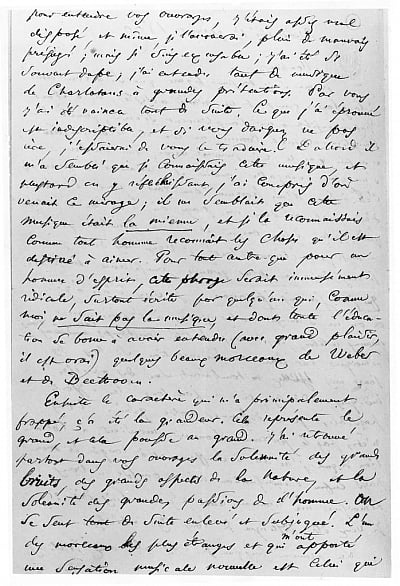 pour entendre vos ouvrages, j'étais assez mal
disposé et même, je l'avouerai, plein de mauvais
préjugés ; mais je suis excusable ; j'ai été si
souvent dupe ; j'ai entendu tant de musique
de Charlatans à grandes prétentions. Par vous
j'ai été vaincu tout de suite. Ce que j'ai éprouvé
est indescriptible, et si vous daignez ne pas
rire, j'essaierai de vous le traduire. D'abord il
m'a semblé que je connaissais cette musique, et
plus tard en y réfléchissant, j'ai compris d'où
venait ce mirage ; il me semblait que cette
musique était la mienne, et je la reconnaissais
comme tout homme reconnaît les choses qu'il est
destiné à aimer. Pour tout autre que pour un
homme d'esprit, cette phrase serait immensément
ridicule, surtout écrite par quelqu'un qui, comme
moi, ne sait pas la musique, et dont toute l'éduca-
tion se borne à avoir entendu (avec grand plaisir,
il est vrai) quelques beaux morceaux de Weber
et de Beethoven.
Ensuite le caractère qui m'a principalement
frappé, ç'a été la grandeur. Cela représente le
grand, et cela pousse au grand. J'ai retrouvé
partout dans vos ouvrages la solennité des grands
bruits, des grands aspects de la Nature, et la
solennité des grandes passions de l'homme. On
se sent tout de suite enlevé et subjugué. L'un
des morceaux les plus étranges et qui m'ont apporté
une sensation musicale nouvelle est celui qui